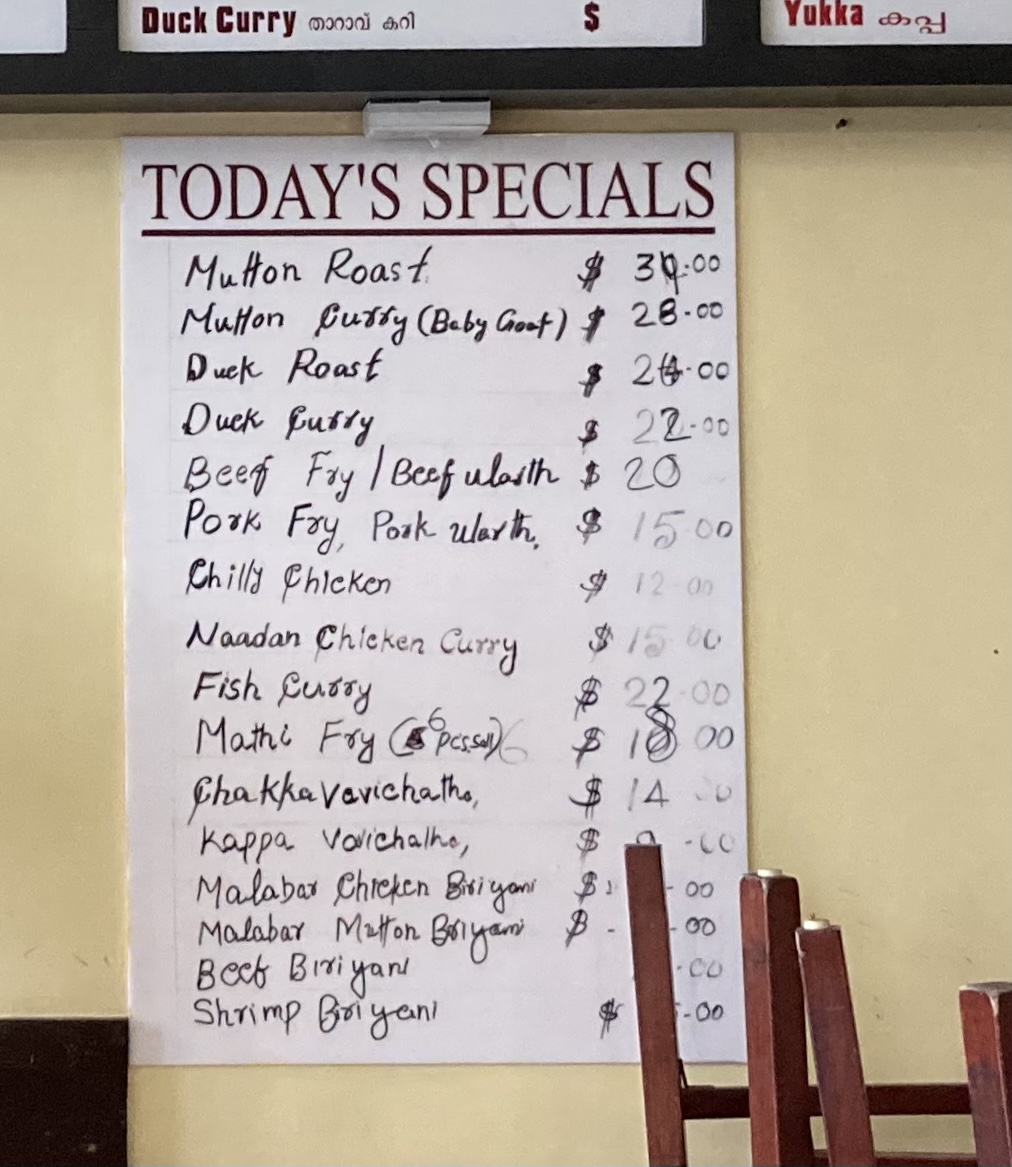 Duck Curry താറാവ് കറി $
Yukka കപ്പ
TODAY'S SPECIALS
Mutton Roast $ 34.00
Mutton Curry (Baby Goat) $ 28.00
Duck Roast $ 24.00
Duck Curry $ 22.00
Beef Fry / Beef ularth $ 20
Pork Fry, Pork ularth, $ 15.00
Chilly Chicken $ 12.00
Naadan Chicken Curry $ 15.00
Fish Curry $ 22.00
Mathi Fry (6 pcs $ 18.00
Chakka Vevichatho, $ 14
Kappa Vevichatho, $ .00
Malabar Chicken Biriyani $ .00
Malabar Mutton Biriyani $ .00
Beef Biriyani .00
Shrimp Biriyani $ .00